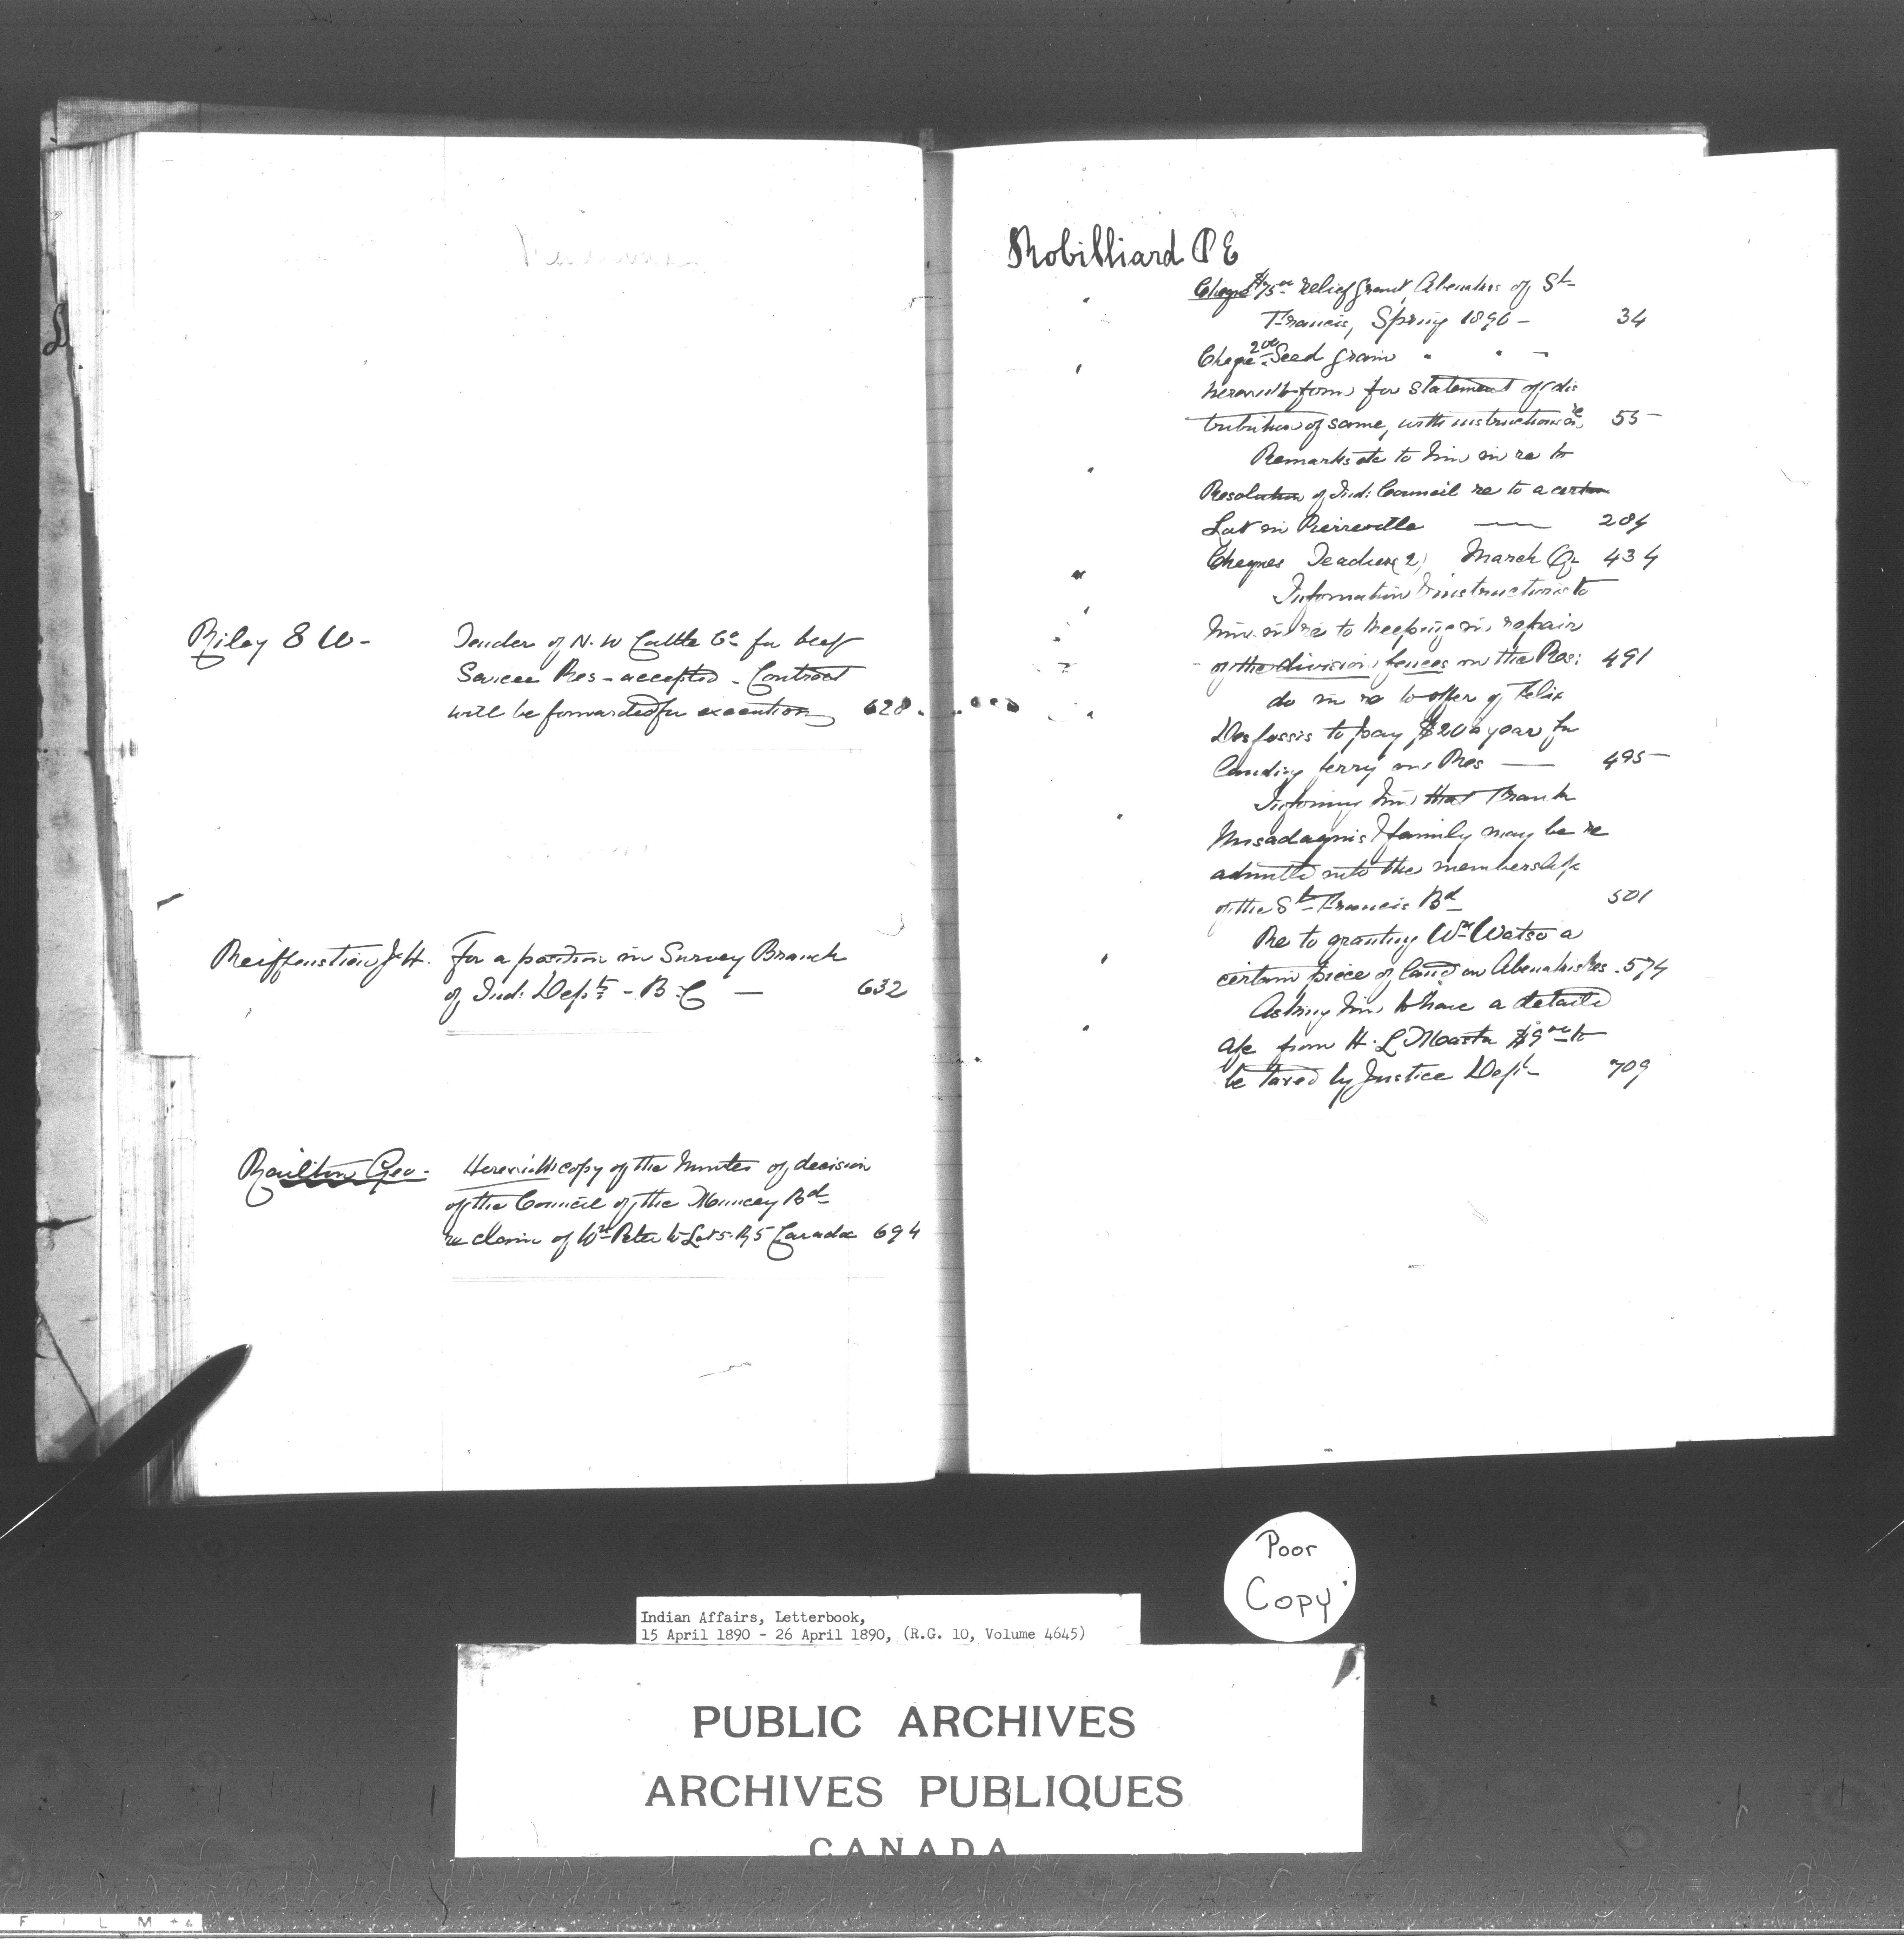 Riley E W -
Tender of N. W Cattle Co for beef
Sarcee Res - accepted - Contract
will be forwarded for execution 628
Reiffenstein J H.
For a position in Survey Branch
of Ind: Dept: - B.C - 632
Railton Geo -
Herewith copy of the Minutes of decision
of the Council of the Muncey Bd
re claim of Wm Peter to Lot 5. R 5 Caradoc 694
Robilliard P E
Cheque $75.00 relief grant, Abenakis of St
Francis, Spring 1890 - 34
Cheque 200 Seed grain " " -
herewith form for statement of dis
tribution of same, with instructions re 55
Remarks etc to him in re to
Resolution of Ind: Council re to a certain
Lot in Pierreville — 284
Cheques Teachers (2) March Qr 434
Information & instructions to
him in re to keeping in repair
of the division fences on the Res: 491
do in re to offer of Felix
Desfosses to pay $20 a year for
landing ferry on Res — 495
Informing him that Frank
& family may be re
admitted into the membership
of the St Francis Bd 501
Re to granting Wm Watso a
certain piece of land on Abenakis Res. 574
Asking him to have a detailed
a/c from H. L Masta $9.00 to
be taxed by Justice Dept 709
Poor
Copy
Indian Affairs, Letterbook,
15 April 1890 - 26 April 1890, (R.G. 10, Volume 4645)
PUBLIC ARCHIVES
ARCHIVES PUBLIQUES
CANADA
F I L M